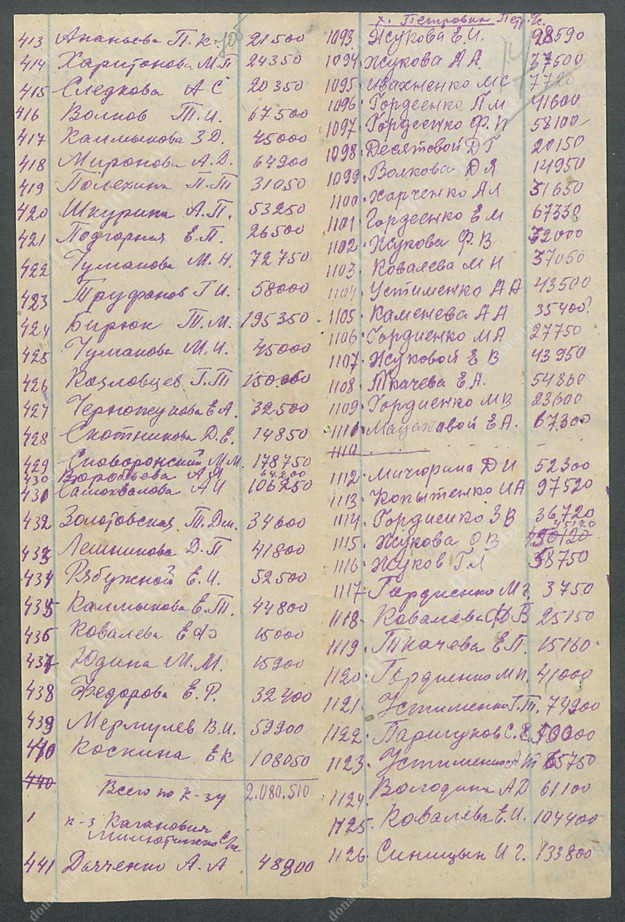 413 Ананьева П.К. 21500
414 Харитонова М.П 24350
415 Следкова А С 20350
416 Волков Т.И. 67500
417 Калмыкова З.Д. 45000
418 Миронова А.Д. 64900
419 П.Т 31050
420 Шкурина А.П. 53250
421 Подгорная Е.П. 26500
422 Чумакова М.Н. 72750
423 Труфанов Г.И. 58000
424 Бирюк Т.М. 195350
425 Чумакова М.И. 45000
426 Козловцев Г.Т 150.000
427 Черножукова Е.А. 32500
428 Скотникова Д.Е. 14850
429 Сковоронский М.М. 178750
430 Воробьева А.И 64200
431 Самохвалова А И 106250
432 Золотовская Т.Дм. 34600
433 Лешникова Д.П 41800
434 Взбужной Е.И. 52500
435 Калмыкова Е.Т. 44800
436 Ковалева Е 15000
437 Юдина М.М. 15900
438 Федорова Е.Р. 32400
439 В.И. 59900
440 Коскина Е К 108050
440
Всего по к-зу 2.080.510
1 к-з Каганович
441 Дьяченко А.А 48900
х. Петровка Петр.
1093 Жукова Е.И. 28590
1094 Жукова А А. 37500
1095 Ивахненко М С 7720
1096 Гордеенко П М 41600
1097 Гордеенко Ф. И 58100
1098 Десятовой Д Г 20150
1099 Волкова Д Я 14950
1100 Харченко А Л 31650
1101 Гордеенко Е М 67330
1102 Жукова Ф. В 32000
1103 Ковалева М Н 37050
1104 Устименко А А 43500
1105 Каменева А А 35400
1106 Гордиенко М А 27750
1107 Жуковой Е В 43950
1108 Ткачева Е.А. 54800
1109 Гордиенко М В 23600
1110 Е А. 67300
1111
1112 Мичюрина Д И 52300
1113 Копытенко И А 97520
1114 Гордиенко З В 36720
1115 Жукова О В 45120
1116 Жуков Г Л 38750
1117 Гордиенко М г. 3750
1118 Ковалева Ф В 25150
1119 Ткачева Е П. 15160
1120 Гордиенко М п. 41000
1121 Устименко Г.Т. 74900
1122 С.Е 50000
1123 Устименко А Т 65750
1124 Володина А Д 61100
1125 Ковалева Е.И. 104400
1126 Синицын И г. 133800